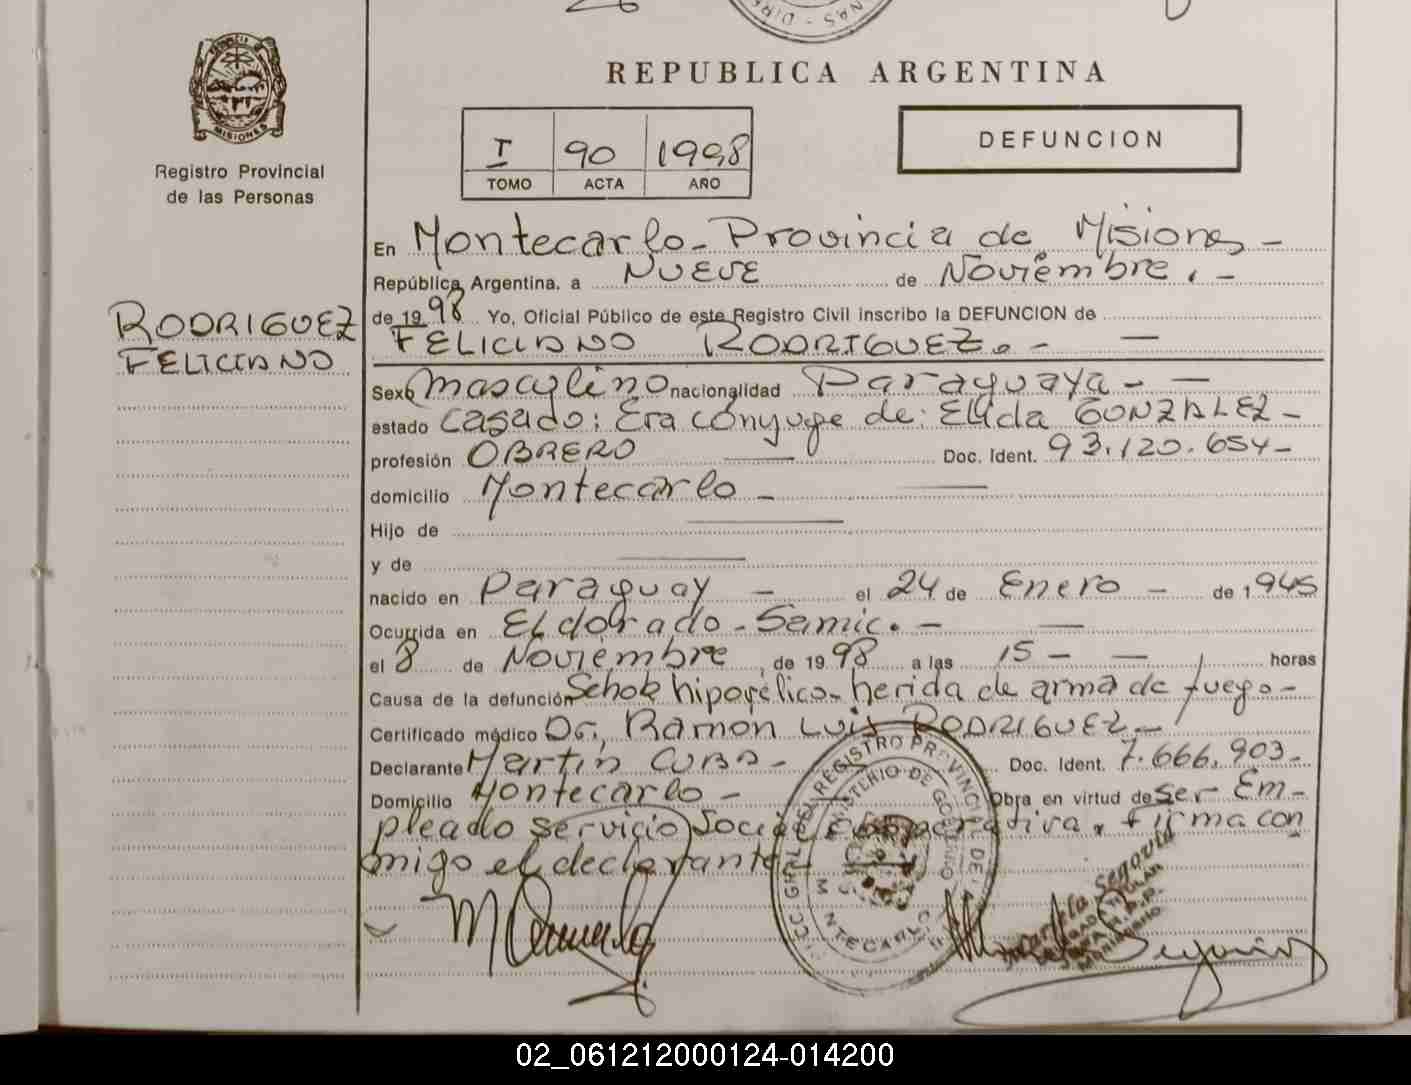 REPUBLICA ARGENTINA
MISIONES
Registro Provincial
de las Personas
I 90 1998
TOMO ACTA AÑO
DEFUNCION
RODRIGUEZ
FELICIANO
En Montecarlo - Provincia de Misiones -
República Argentina, a NUEVE de Noviembre. -
de 1998 Yo, Oficial Público de este Registro Civil inscribo la DEFUNCION de
FELICIANO RODRIGUEZ. - —
Sexo masculino nacionalidad Paraguaya - —
estado casado: Era conyuge de: Elida GONZALEZ -
profesión OBRERO — Doc. Ident. 93.120.654 -
domicilio Montecarlo - —
Hijo de —
y de —
nacido en Paraguay - el 24 de Enero - de 1.945
Ocurrida en Eldorado - Samic. - —
el 8 de Noviembre de 1998 a las 15 - — horas
Causa de la defunción Schok hipovélico - herida de arma de fuego -
Certificado médico Dr. Ramon Luis RODRIGUEZ -
Declarante Martin CUBA - Doc. Ident. 7.666.903 -
Domicilio Montecarlo - Obra en virtud de ser Em-
pleado servicio Social Cooperativa. Firma con
migo el declarante
REGISTRO PROVINCIAL DE
MINISTERIO DE GOBIERNO
MONTECARLO
Segovia
02_061212000124-014200